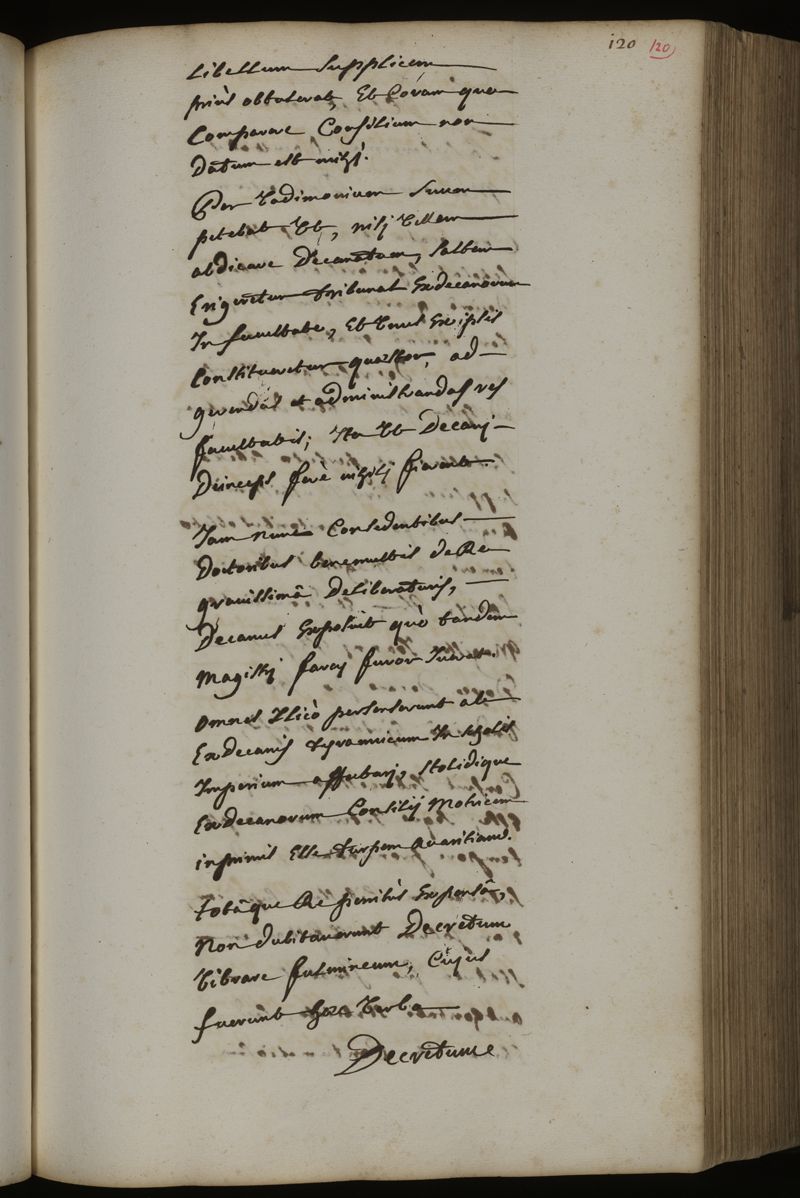 120 120
Libellum supplicem
priùs obtulerat, Et Coram quo
Comparare Consilium non
Datum est mihi.
Per Vadimonium suum
petebat Vt, nisi Vellem
abdicare Decanatum, saltem
Erigeretur tribunal Exdecanorum
In facultate, Et Vnus Ex ipsis
Constitueretur quæstor, ad
gerendas et administrandas res
facultatis; Ita Vt Decani
Deinceps ferè nihili fierent.
Jam nunc Considentibus
Doctoribus benemultis de Re
grauissimâ Deliberaturis,
Decanus Exposuit quò tandem
Magistri furor
omnes Illicò persenserunt ab
Exdecanis tyrannicum In scholis
Imperium affectari, stolidique
Exdecanorum Consilij Motricem
inprimis Esse turpem Auaritiam.
Totâque Re penitùs Expensâ,
Non dubitauerunt Decretum
Vibrare fulmineum, Cujus
fuerunt hæc Verba
Decretum